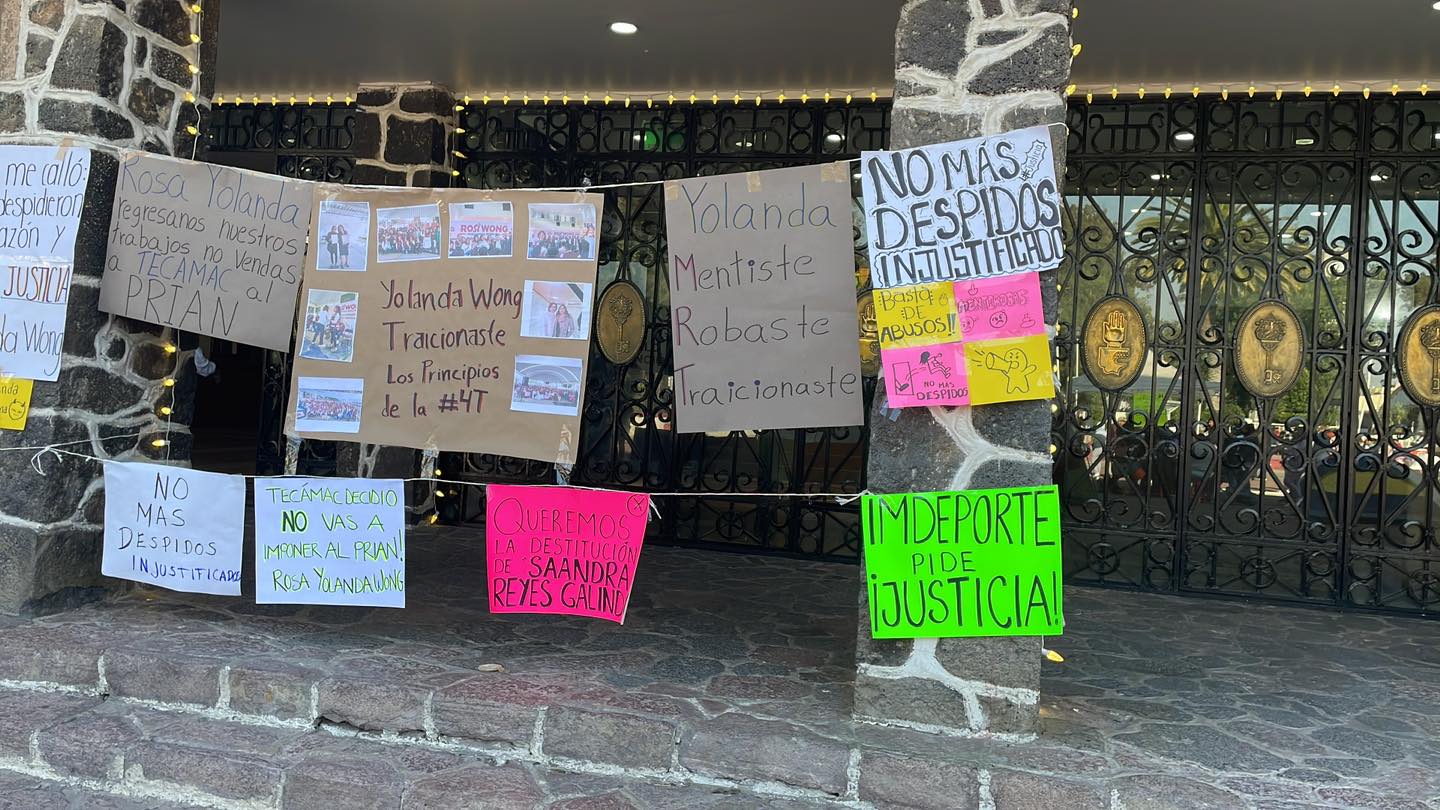 me calló:
despidieron
azón y
JUSTICIA
da Wong
Rosa Yolanda
regresanos nuestros
trabajos no vendas
a TECAMAC al
PRIAN
ROSI WONG
Yolanda Wong
Traicionaste
Los Principios
de la #4T
Yolanda
Mentiste
Robaste
Traicionaste
NO MÁS
DESPIDOS
INJUSTIFICADO
BASTA
DE
ABUSOS!!
MENTIROSAS
NO MAS
DESPIDOS
NO
MAS
DESPIDOS
INJUSTIFICADOS
TECÁMAC DECIDIO
NO VAS A
IMPONER AL PRIAN!
ROSA YOLANDA WONG
QUEREMOS
LA DESTITUCIÓN
DE SAANDRA
REYES GALIND
IMDEPORTE
PIDE
¡JUSTICIA!